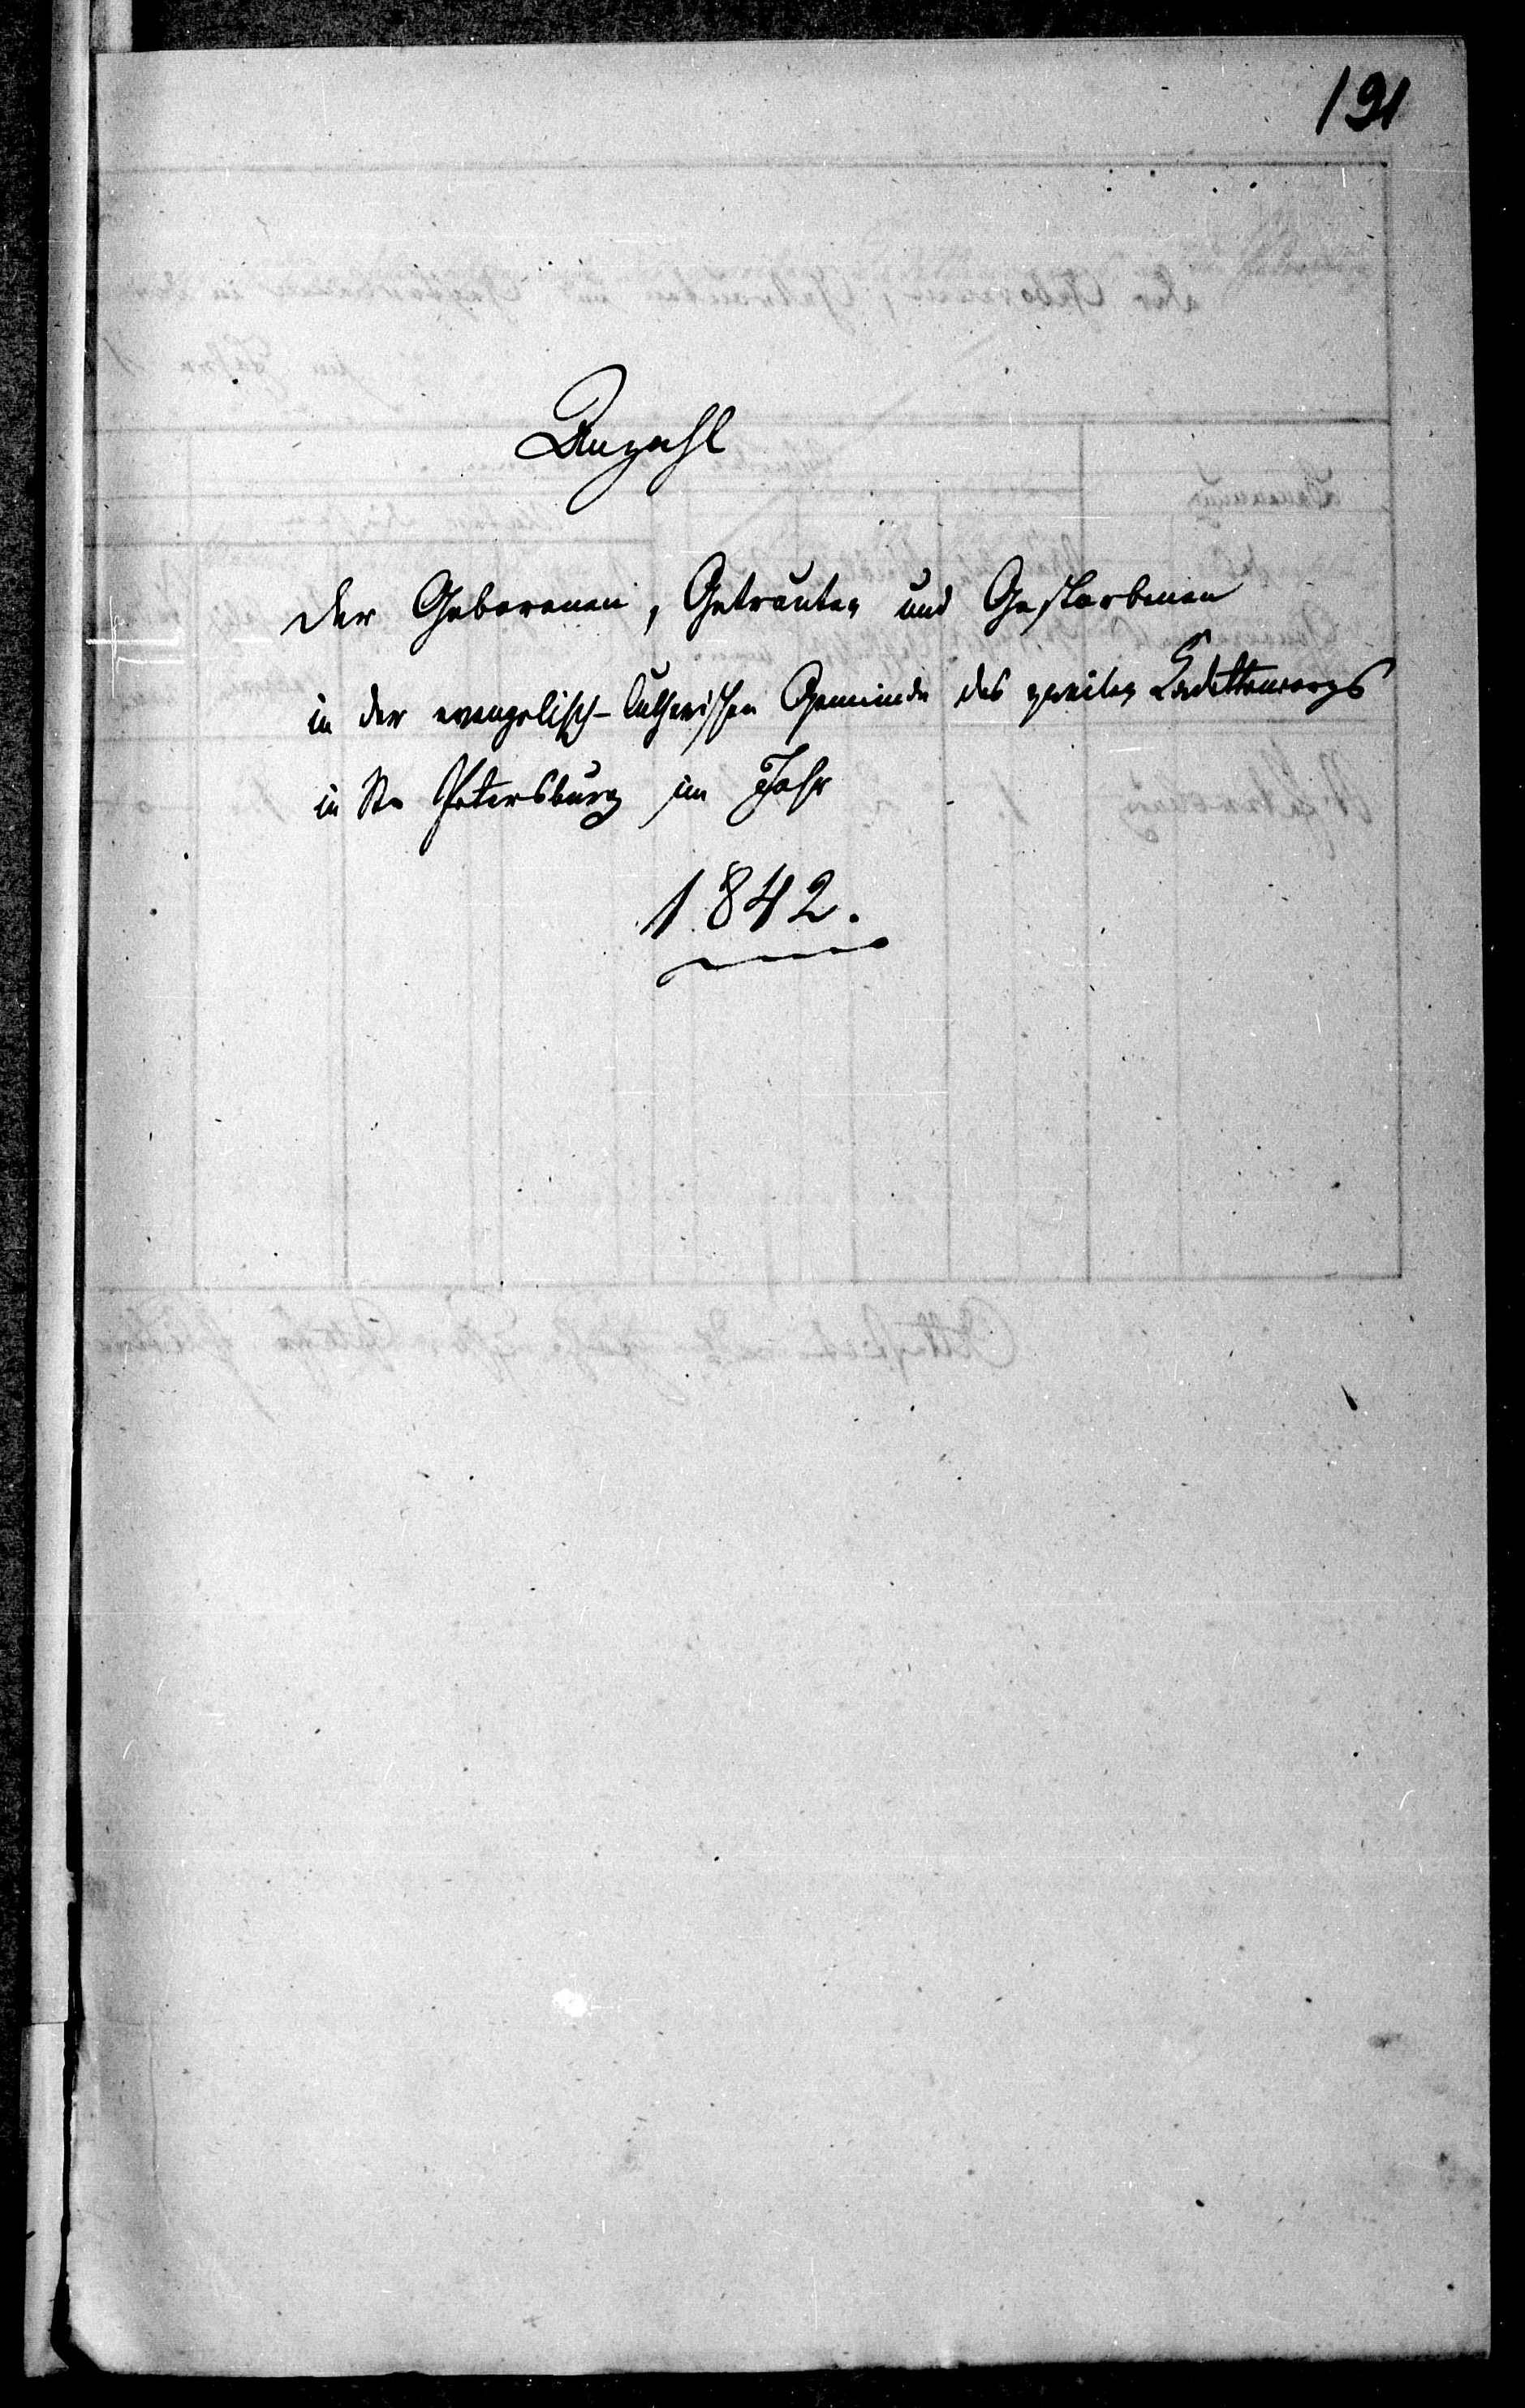 191
Anzahl
der Geborenen, Getrauten und Gestorbenen
in der evangelisch-lutherischen Gemeinde des zweiten Cadettencorps
in St. Petersburg im Jahr
1842.